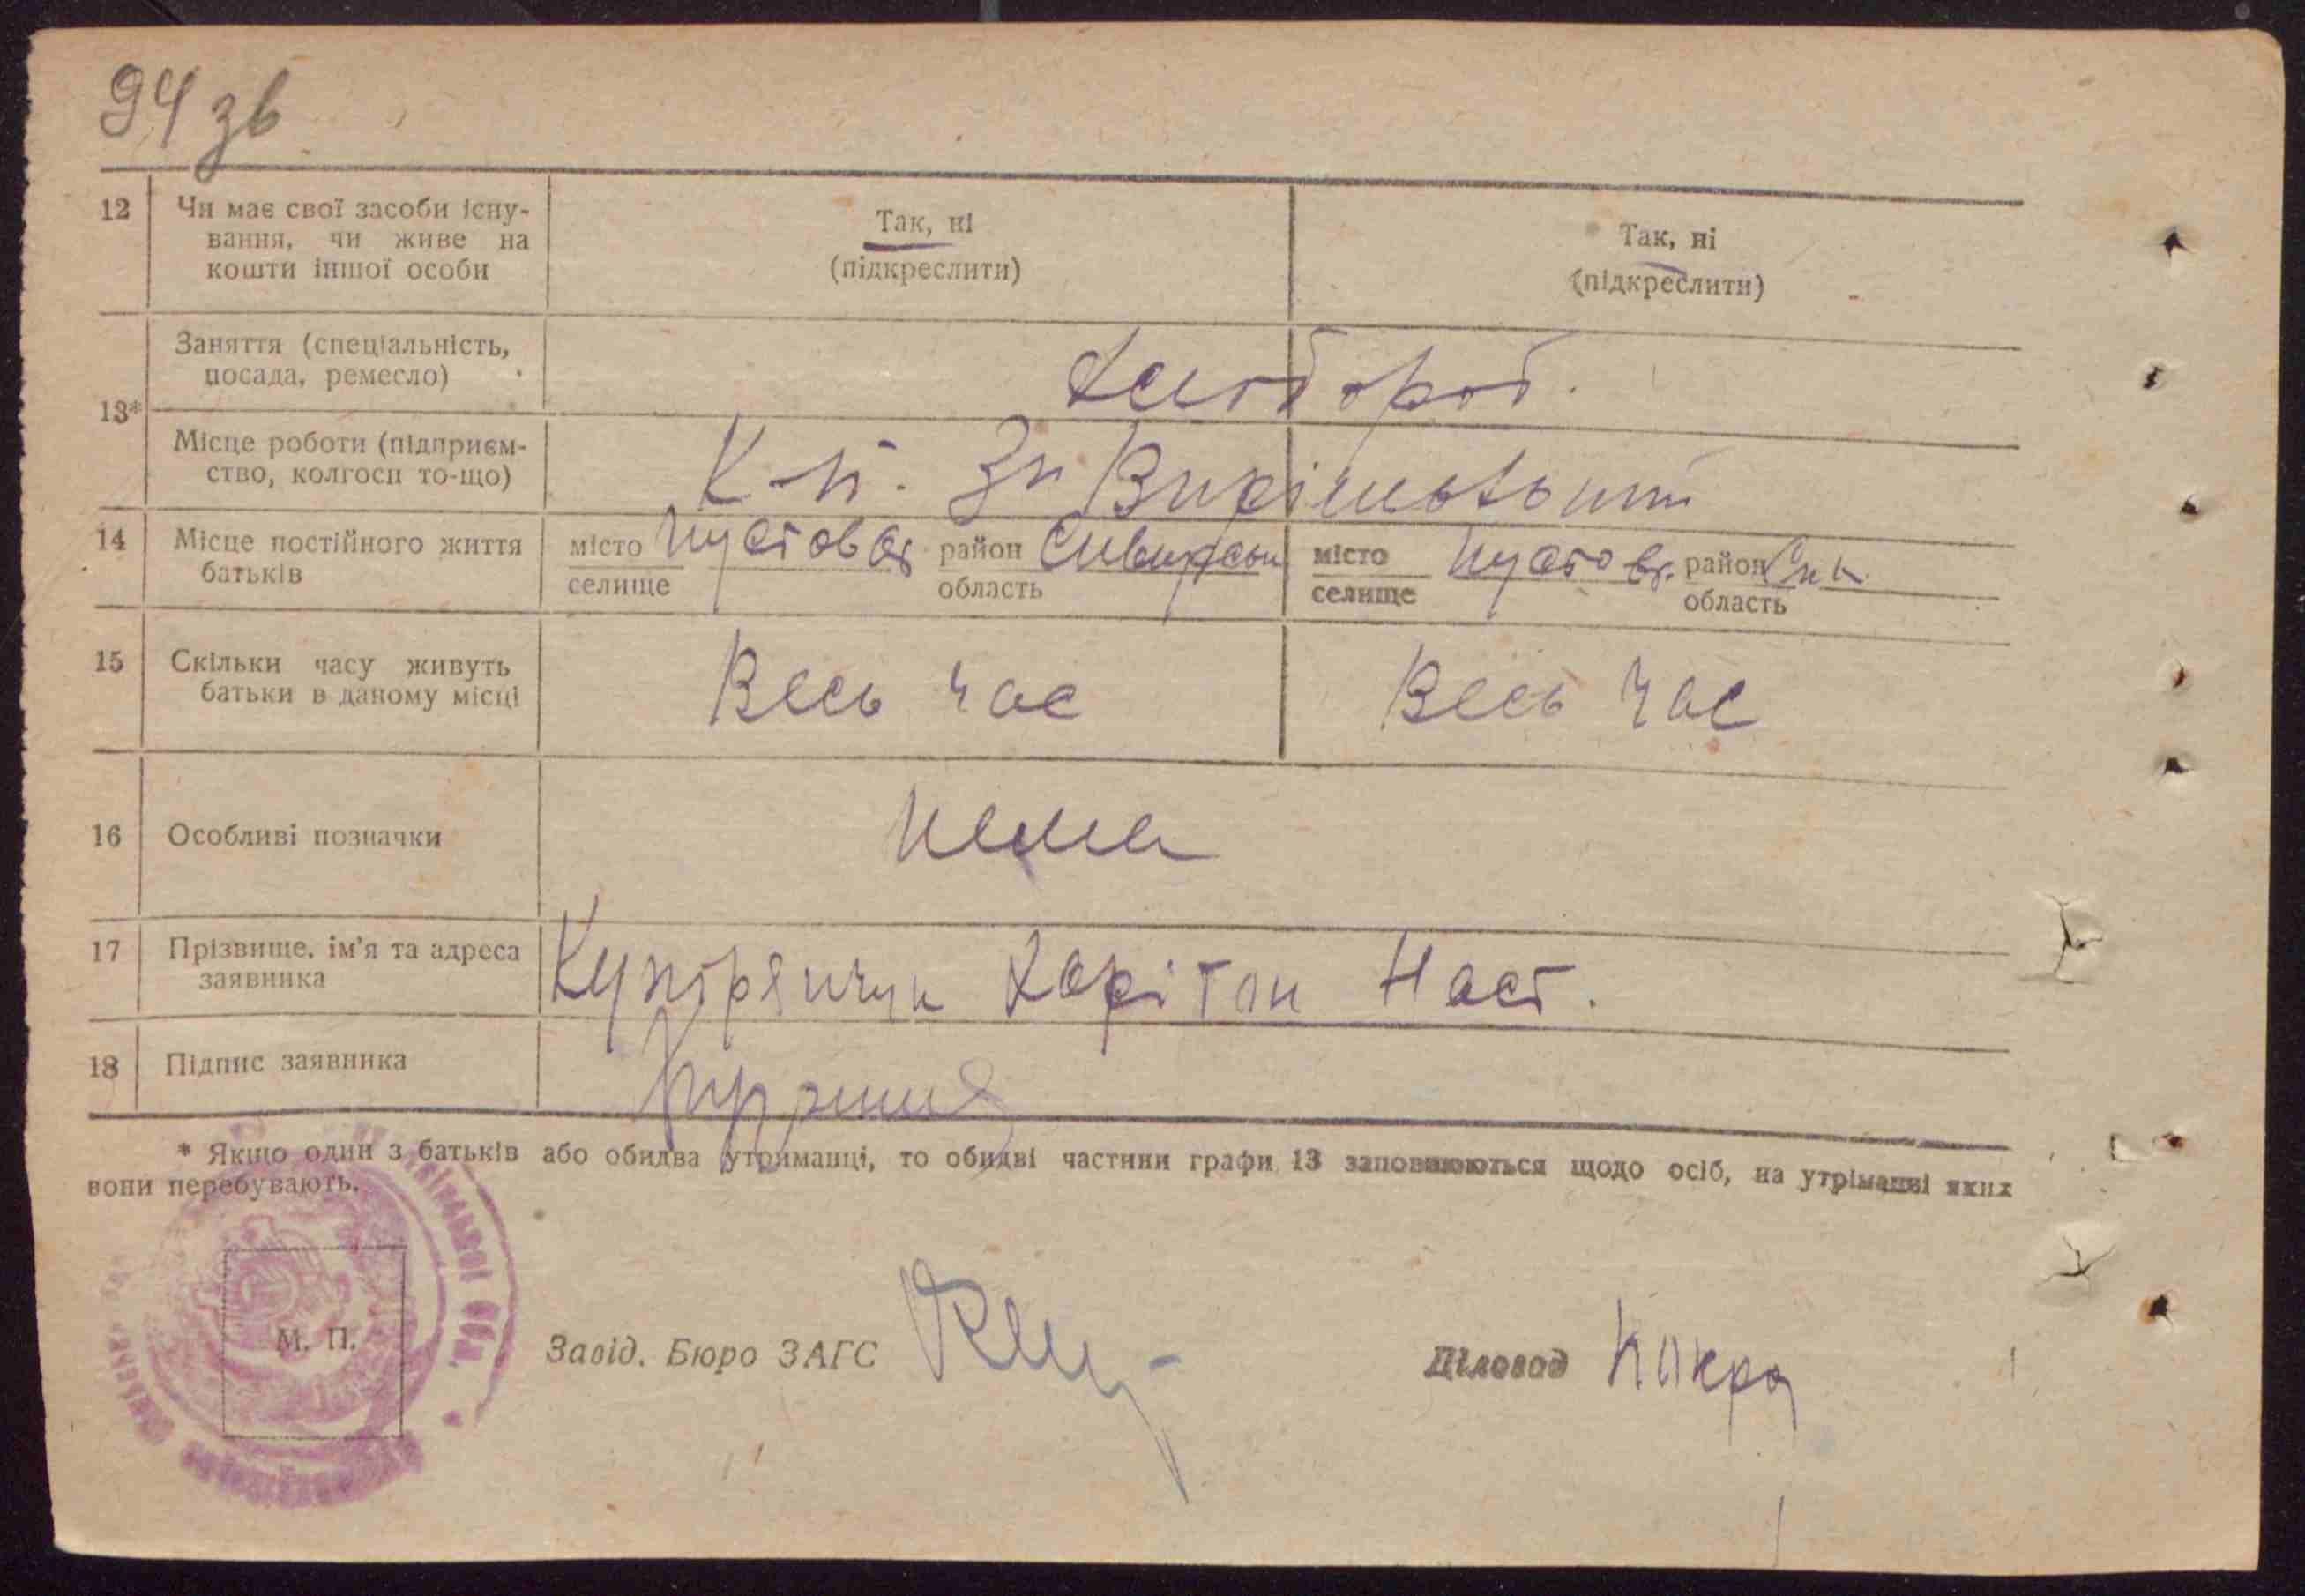 94 зв
12 Чи має свої засоби існу-
вання, чи живе на
кошти іншої особи
Так, ні
(підкреслити)
Так, ні
(підкреслити)
13*
Заняття (спеціальність,
посада, ремесло)
хлібороб.
Місце роботи (підприєм-
ство, колгосп то-що)
К-п.
14 Місце постійного життя
батьків
місто
селище
Пустов
район
область
місто
селище
Пустов.
район
область
15 Скільки часу живуть
батьки в даному місці
Весь час
Весь час
16 Особливі позначки
нема
17 Прізвище, ім'я та адреса
заявника
Харітон Наст.
18 Підпис заявника
* Якщо один з батьків або обидва утриманці, то обидві частини графи 13 заповнюються щодо осіб, на утріманні яких
вони перебувають.
М. П.
Завід. Бюро ЗАГС
Діловод